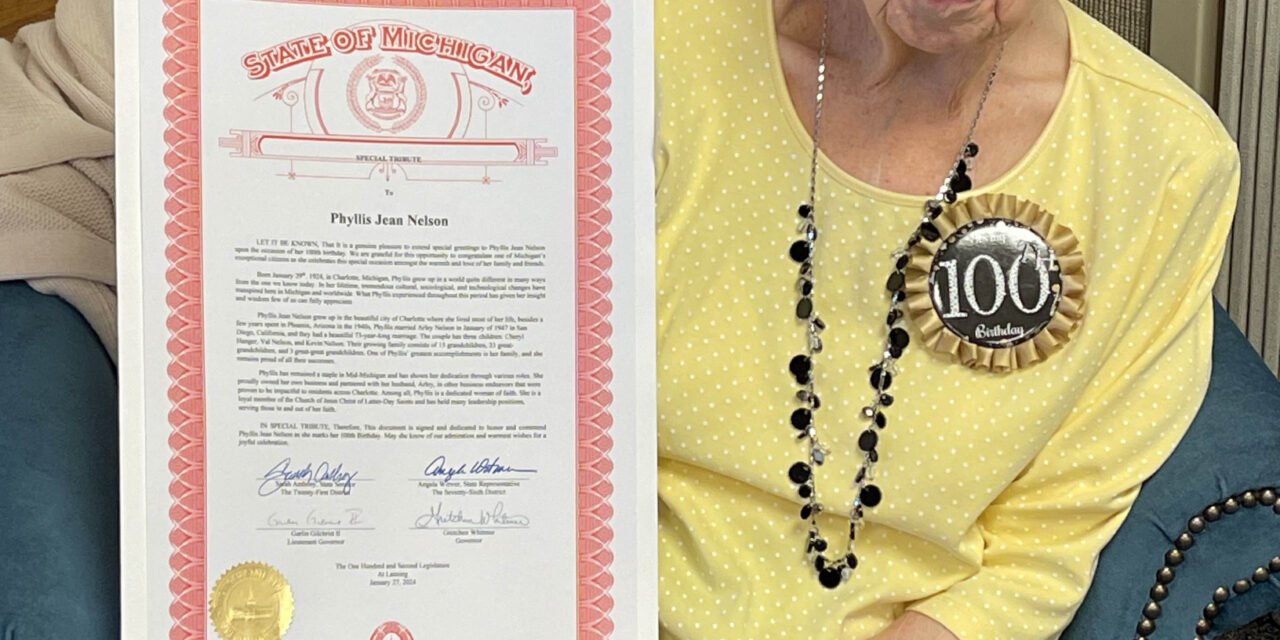 STATE OF MICHIGAN,
SPECIAL TRIBUTE
To
Phyllis Jean Nelson
LET IT BE KNOWN, That It is a genuine pleasure to extend special greetings to Phyllis Jean Nelson
upon the occasion of her 100th birthday. We are grateful for this opportunity to congratulate one of Michigan's
exceptional citizens as she celebrates this special occasion amongst the warmth and love of her family and friends.
Born January 29th, 1924, in Charlotte, Michigan, Phyllis grew up in a world quite different in many ways
from the one we know today. In her lifetime, tremendous cultural, sociological, and technological changes have
transpired here in Michigan and worldwide. What Phyllis experienced throughout this period has given her insight
and wisdom few of us can fully appreciate.
Phyllis Jean Nelson grew up in the beautiful city of Charlotte where she lived most of her life, besides a
few years spent in Phoenix, Arizona in the 1940s. Phyllis married Arley Nelson in January of 1947 in San
Diego, California, and they had a beautiful 73-year-long marriage. The couple has three children: Cheryl
Hanger, Val Nelson, and Kevin Nelson. Their growing family consists of 15 grandchildren, 33 great-
grandchildren, and 3 great-great grandchildren. One of Phyllis' greatest accomplishments is her family, and she
remains proud of all their successes.
Phyllis has remained a staple in Mid-Michigan and has shown her dedication through various roles. She
proudly owned her own business and partnered with her husband, Arley, in other business endeavors that were
proven to be impactful to residents across Charlotte. Among all, Phyllis is a dedicated woman of faith. She is a
loyal member of the Church of Jesus Christ of Latter-Day Saints and has held many leadership positions,
serving those in and out of her faith.
IN SPECIAL TRIBUTE, Therefore, This document is signed and dedicated to honor and commend
Phyllis Jean Nelson as she marks her 100th Birthday. May she know of our admiration and warmest wishes for a
joyful celebration.
Sarah Anthony, State Senator
The Twenty-First District
Angela Witwer, State Representative
The Seventy-Sixth District
Garlin Gilchrist II
Lieutenant Governor
Gretchen Whitmer
Governor
The One Hundred and Second Legislature
At Lansing
January 27, 2024
100th
Birthday